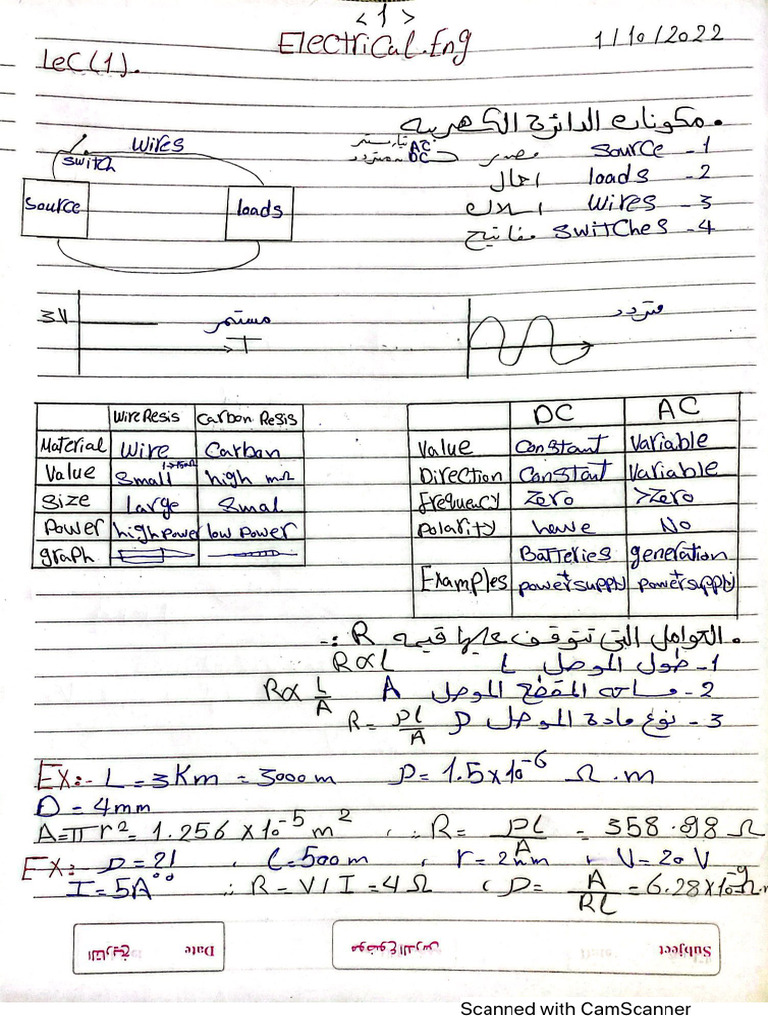 < 1 >
Electrical.Eng
1/10/2022
Lec(1).
مكونات الدائرة الكهربيه.
wires
switch
source
loads
1- source مصدر
AC تيار مستمر
DC متردد
2- loads احمال
3- wires اسلاك
4- switches مفاتيح
3V
مستمر
T
متردد
wire Resis Carbon Resis
Material wire Carbon
Value small 1→15Ω high mΩ
Size large smal
Power high power low power
graph
DC AC
Value Constant Variable
Direction Constant Variable
frequency Zero >Zero
Polarity have No
Examples Batteries + powersupply generation + powersupply
العوامل التي تتوقف عليها قيمه R :-
1- طول الموصل L R∝L
2- مساحه المقطع الموصل A R∝ L/A
3- نوع مادة الموصل ρ R= ρL/A
EX:- L=3Km = 3000m ρ=1.5×10⁻⁶ Ω.m
D=4mm
A=πr²=1.256×10⁻⁵m² ∴R= ρL/A = 358.98Ω
EX:- ρ=?! , L=500m , r=2mm , V=20V
I=5A ∴R=V/I=4Ω (ρ= A/RL =6.28×10⁻⁹Ω.
Subject موضوع الدرس
Date التاريخ
Scanned with CamScanner